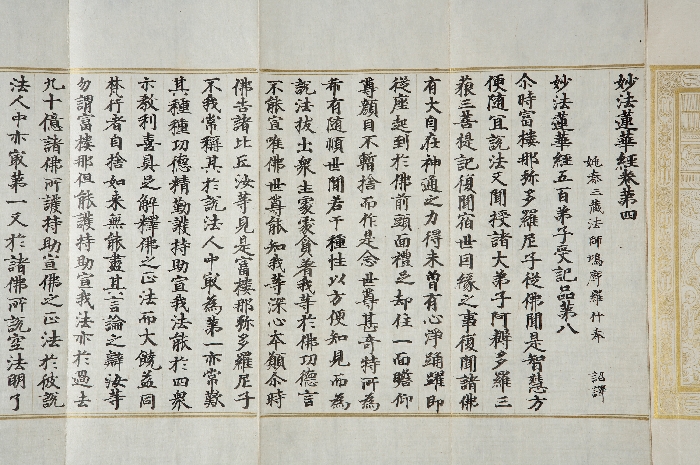 妙法蓮華經卷第四
姚秦三藏法師鳩摩羅什奉 詔譯
妙法蓮華經五百弟子受記品第八
尒時富樓那弥多羅尼子從佛聞是智慧方
便隨宜說法又聞授諸大弟子阿耨多羅三
藐三菩提記復聞宿世因緣之事復聞諸佛
有大自在神通之力得未曾有心淨踊躍即
從座起到於佛前頭面禮足却住一面瞻仰
尊顏目不暫捨而作是念世尊甚奇特所為
希有隨順世間若干種性以方便知見而為
說法拔出衆生處處貪著我等於佛功德言
不能宣唯佛世尊能知我等深心本願尒時
佛告諸比丘汝等見是富樓那弥多羅尼子
不我常稱其於說法人中冣為第一亦常歎
其種種功德精勤護持助宣我法能於四衆
示教利喜具足解釋佛之正法而大饒益同
梵行者自捨如来無能盡其言論之辯汝等
勿謂富樓那但能護持助宣我法亦於過去
九十億諸佛所護持助宣佛之正法於彼說
法人中亦冣第一又於諸佛所說空法明了